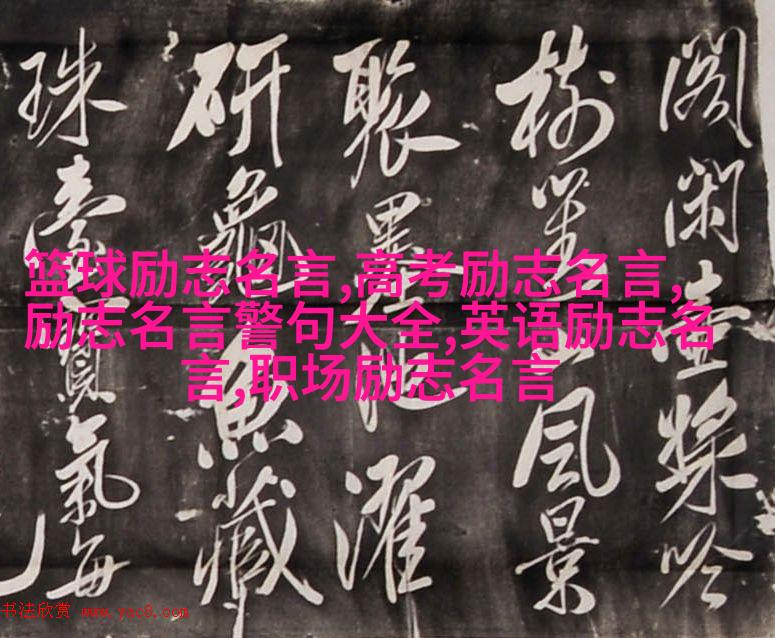 篮球励志名言,高考励志名言,
励志名言警句大全,英语励志名
言,职场励志名言
阁闲壶吟
树风景
墨池濯
研鱼藏
珠寶氣每
书法欣赏 www.yac8.com